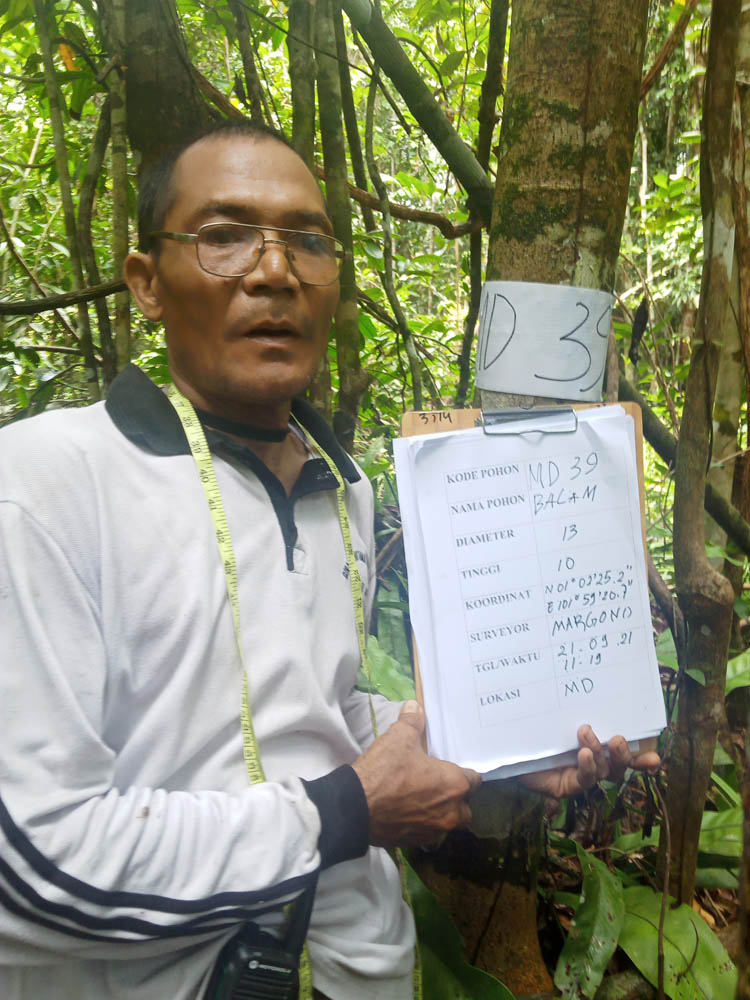 MD 39
3374
KODE POHON MD 39
NAMA POHON BALAM
DIAMETER 13
TINGGI 10
KOORDINAT N 01° 02' 25.2"
E 101° 59' 20.7"
SURVEYOR MARGONO
TGL/WAKTU 21-09.21
11-19
LOKASI MD
MOTOROLA